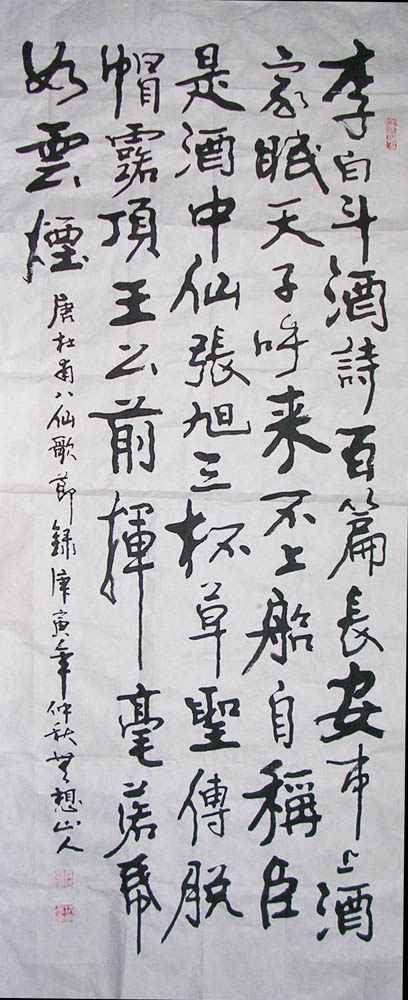 李白斗酒詩百篇長安市上酒
家眠天子呼来不上船自稱臣
是酒中仙張旭三杯草聖傳脱
帽露頂王公前揮毫落帋
如雲煙
唐杜甫八仙歌節録庚寅年仲秋想山人